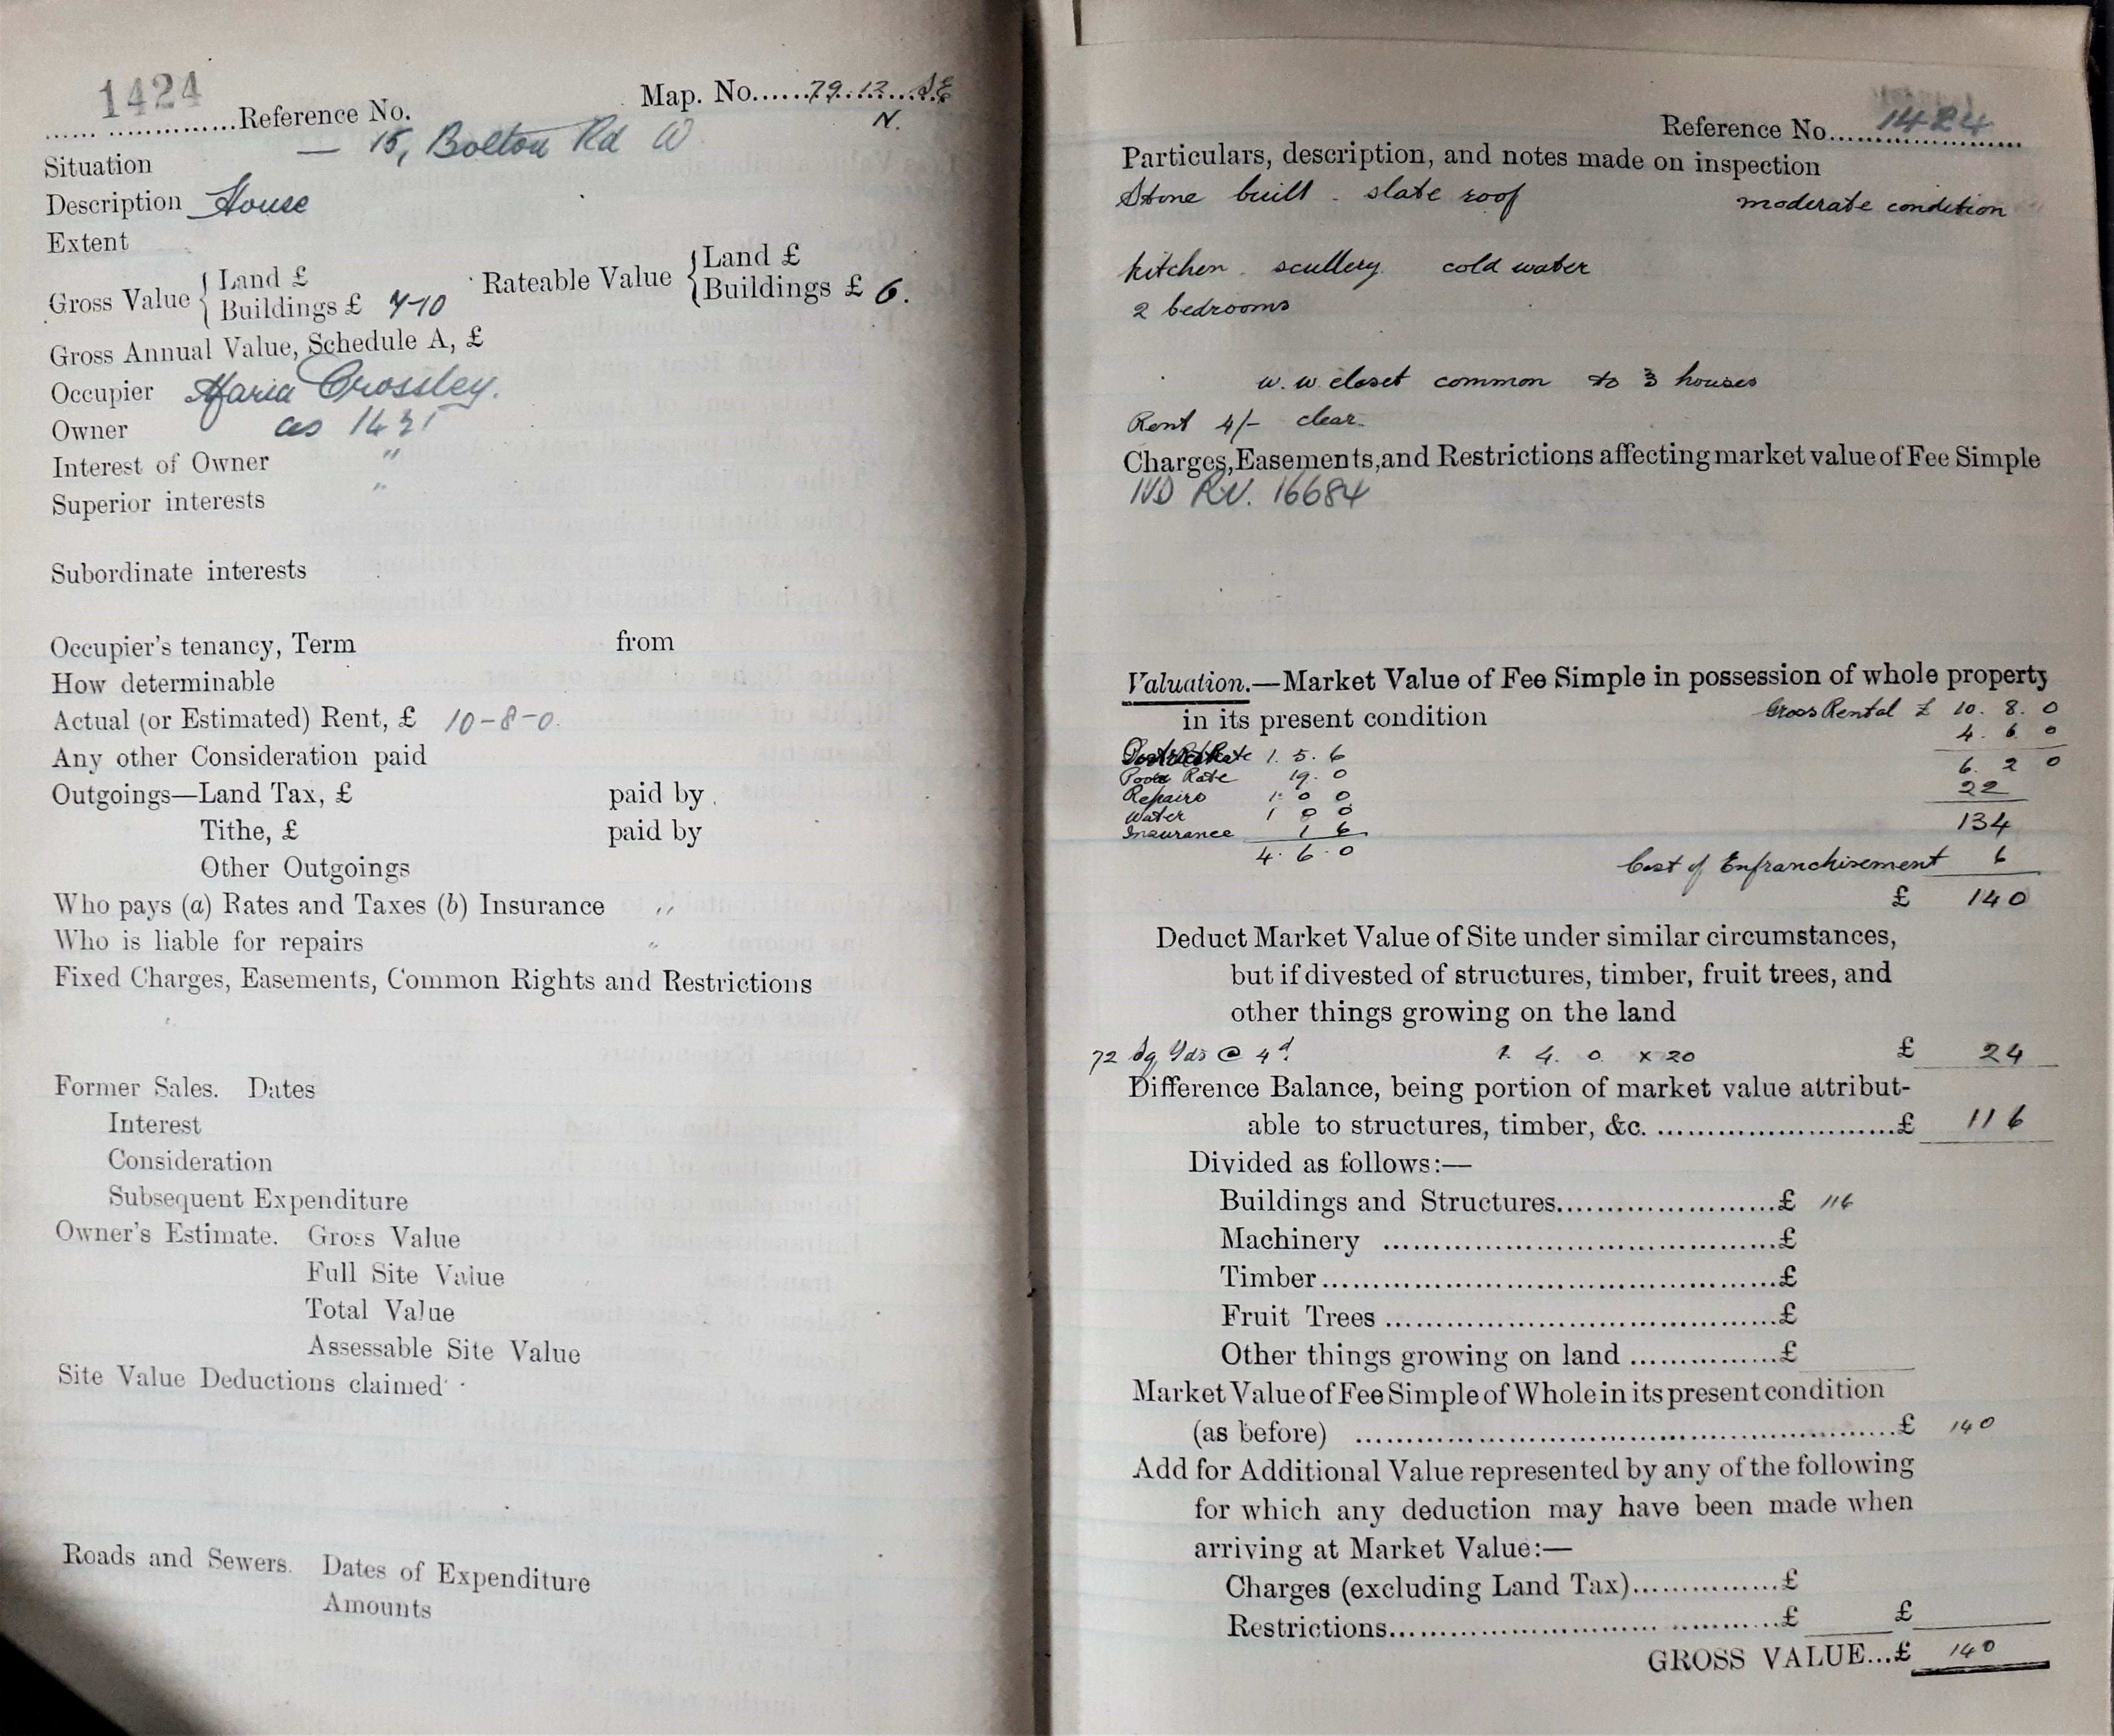 1424
Reference No.
Map. No. 79.12. S.E
N.
Situation — 15, Bolton Rd W
Description House
Extent
Gross Value { Land £
Buildings £ 7-10
Rateable Value { Land £
Buildings £ 6.
Gross Annual Value, Schedule A, £
Occupier Maria Crossley.
Owner as 1421
Interest of Owner "
Superior interests "
Subordinate interests
Occupier's tenancy, Term from
How determinable
Actual (or Estimated) Rent, £ 10-8-0.
Any other Consideration paid
Outgoings—Land Tax, £ paid by
Tithe, £ paid by
Other Outgoings
Who pays (a) Rates and Taxes (b) Insurance "
Who is liable for repairs "
Fixed Charges, Easements, Common Rights and Restrictions
Former Sales. Dates
Interest
Consideration
Subsequent Expenditure
Owner's Estimate. Gross Value
Full Site Value
Total Value
Assessable Site Value
Site Value Deductions claimed
Roads and Sewers. Dates of Expenditure
Amounts
Reference No. 1424
Particulars, description, and notes made on inspection
Stone built - slate roof moderate condition
kitchen. scullery. cold water
2 bedrooms
w. w. closet common to 3 houses
Rent 4/- clear.
Charges, Easements, and Restrictions affecting market value of Fee Simple
RV. 16684
Valuation.—Market Value of Fee Simple in possession of whole property
in its present condition Gross Rental £ 10. 8. 0
4. 6 0
Rate 1. 5. 6
6. 2 0
Poor Rate 19. 0
22
Repairs 1. 0 0
Water 1 0 0
134
Insurance 1 6
4. 6. 0
Cost of Enfranchisement 6
£ 140
Deduct Market Value of Site under similar circumstances,
but if divested of structures, timber, fruit trees, and
other things growing on the land
72 Sq Yds @ 4d. 1. 4. 0. x 20 £ 24
Difference Balance, being portion of market value attribut-
able to structures, timber, &c. £ 116
Divided as follows:—
Buildings and Structures £ 116
Machinery £
Timber £
Fruit Trees £
Other things growing on land £
Market Value of Fee Simple of Whole in its present condition
(as before) £ 140
Add for Additional Value represented by any of the following
for which any deduction may have been made when
arriving at Market Value:—
Charges (excluding Land Tax) £
Restrictions £ £
GROSS VALUE...£ 140